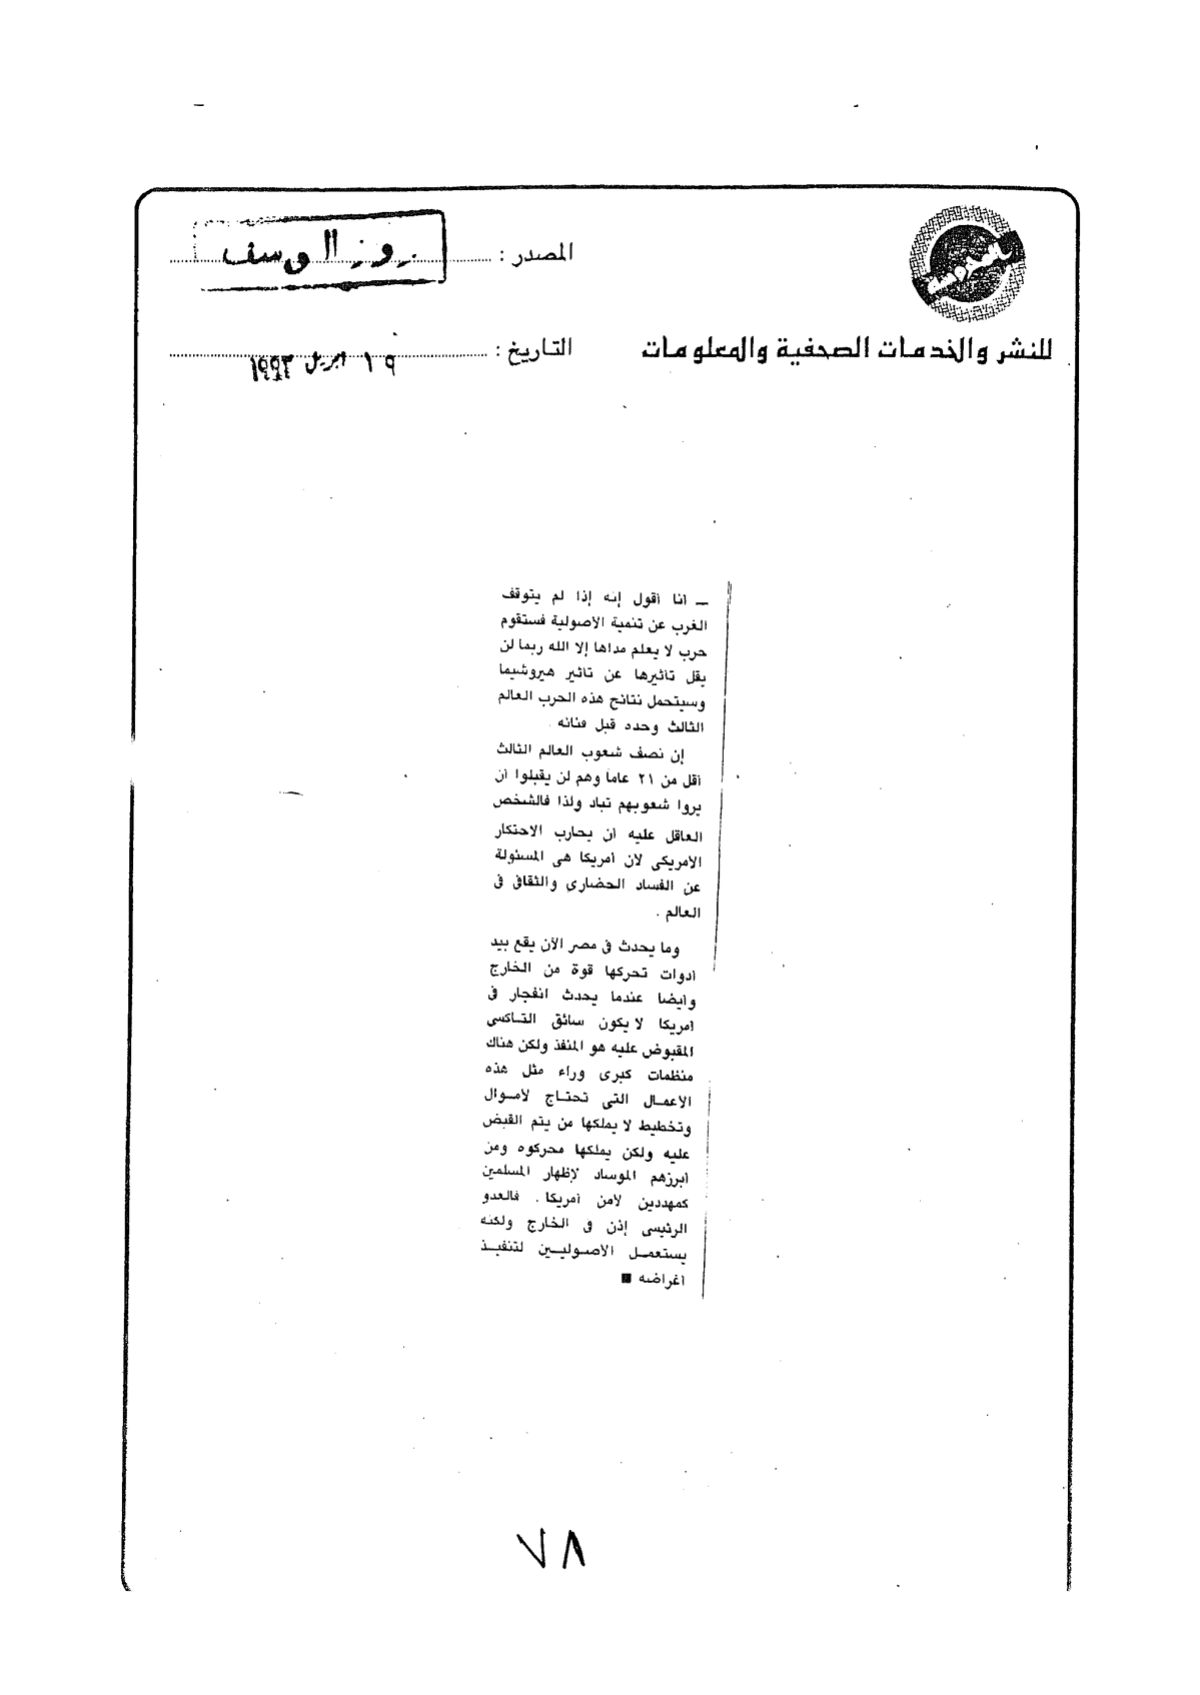 المصدر : روز اليوسف
للنشر والخدمات الصحفية والمعلومات
التاريخ : ١٩ ابريل ١٩٩٣
ــ أنا أقول إنه إذا لم يتوقف
الغرب عن تنمية الأصولية فستقوم
حرب لا يعلم مداها إلا الله ربما لن
يقل تأثيرها عن تأثير هيروشيما
وسيتحمل نتائج هذه الحرب العالم
الثالث وحده قبل فنائه .
إن نصف شعوب العالم الثالث
أقل من ٢١ عاما وهم لن يقبلوا أن
يروا شعوبهم تباد ولذا فالشخص
العاقل عليه أن يحارب الاحتكار
الأمريكى لأن أمريكا هى المسئولة
عن الفساد الحضارى والثقافى فى
العالم .
وما يحدث فى مصر الآن يقع بيد
أدوات تحركها قوة من الخارج
وأيضا عندما يحدث انفجار فى
أمريكا لا يكون سائق التاكسى
المقبوض عليه هو المنفذ ولكن هناك
منظمات كبرى وراء مثل هذه
الأعمال التى تحتاج لأموال
وتخطيط لا يملكها من يتم القبض
عليه ولكن يملكها محركوه ومن
أبرزهم الموساد لإظهار المسلمين
كمهددين لأمن أمريكا . فالعدو
الرئيسى إذن فى الخارج ولكنه
يستعمل الأصوليين لتنفيذ
أغراضه ■
٧٨